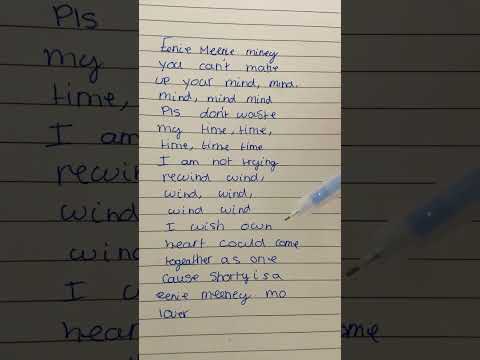 Eenie Meenie miney
you can't make
up your mind, mind.
mind, mind mind
Pls don't waste
my time, time,
time, time time
I am not trying
rewind wind,
wind, wind,
wind wind
I wish own
heart could come
togeather as one
cause Shorty is a
eenie meeney mo
lover